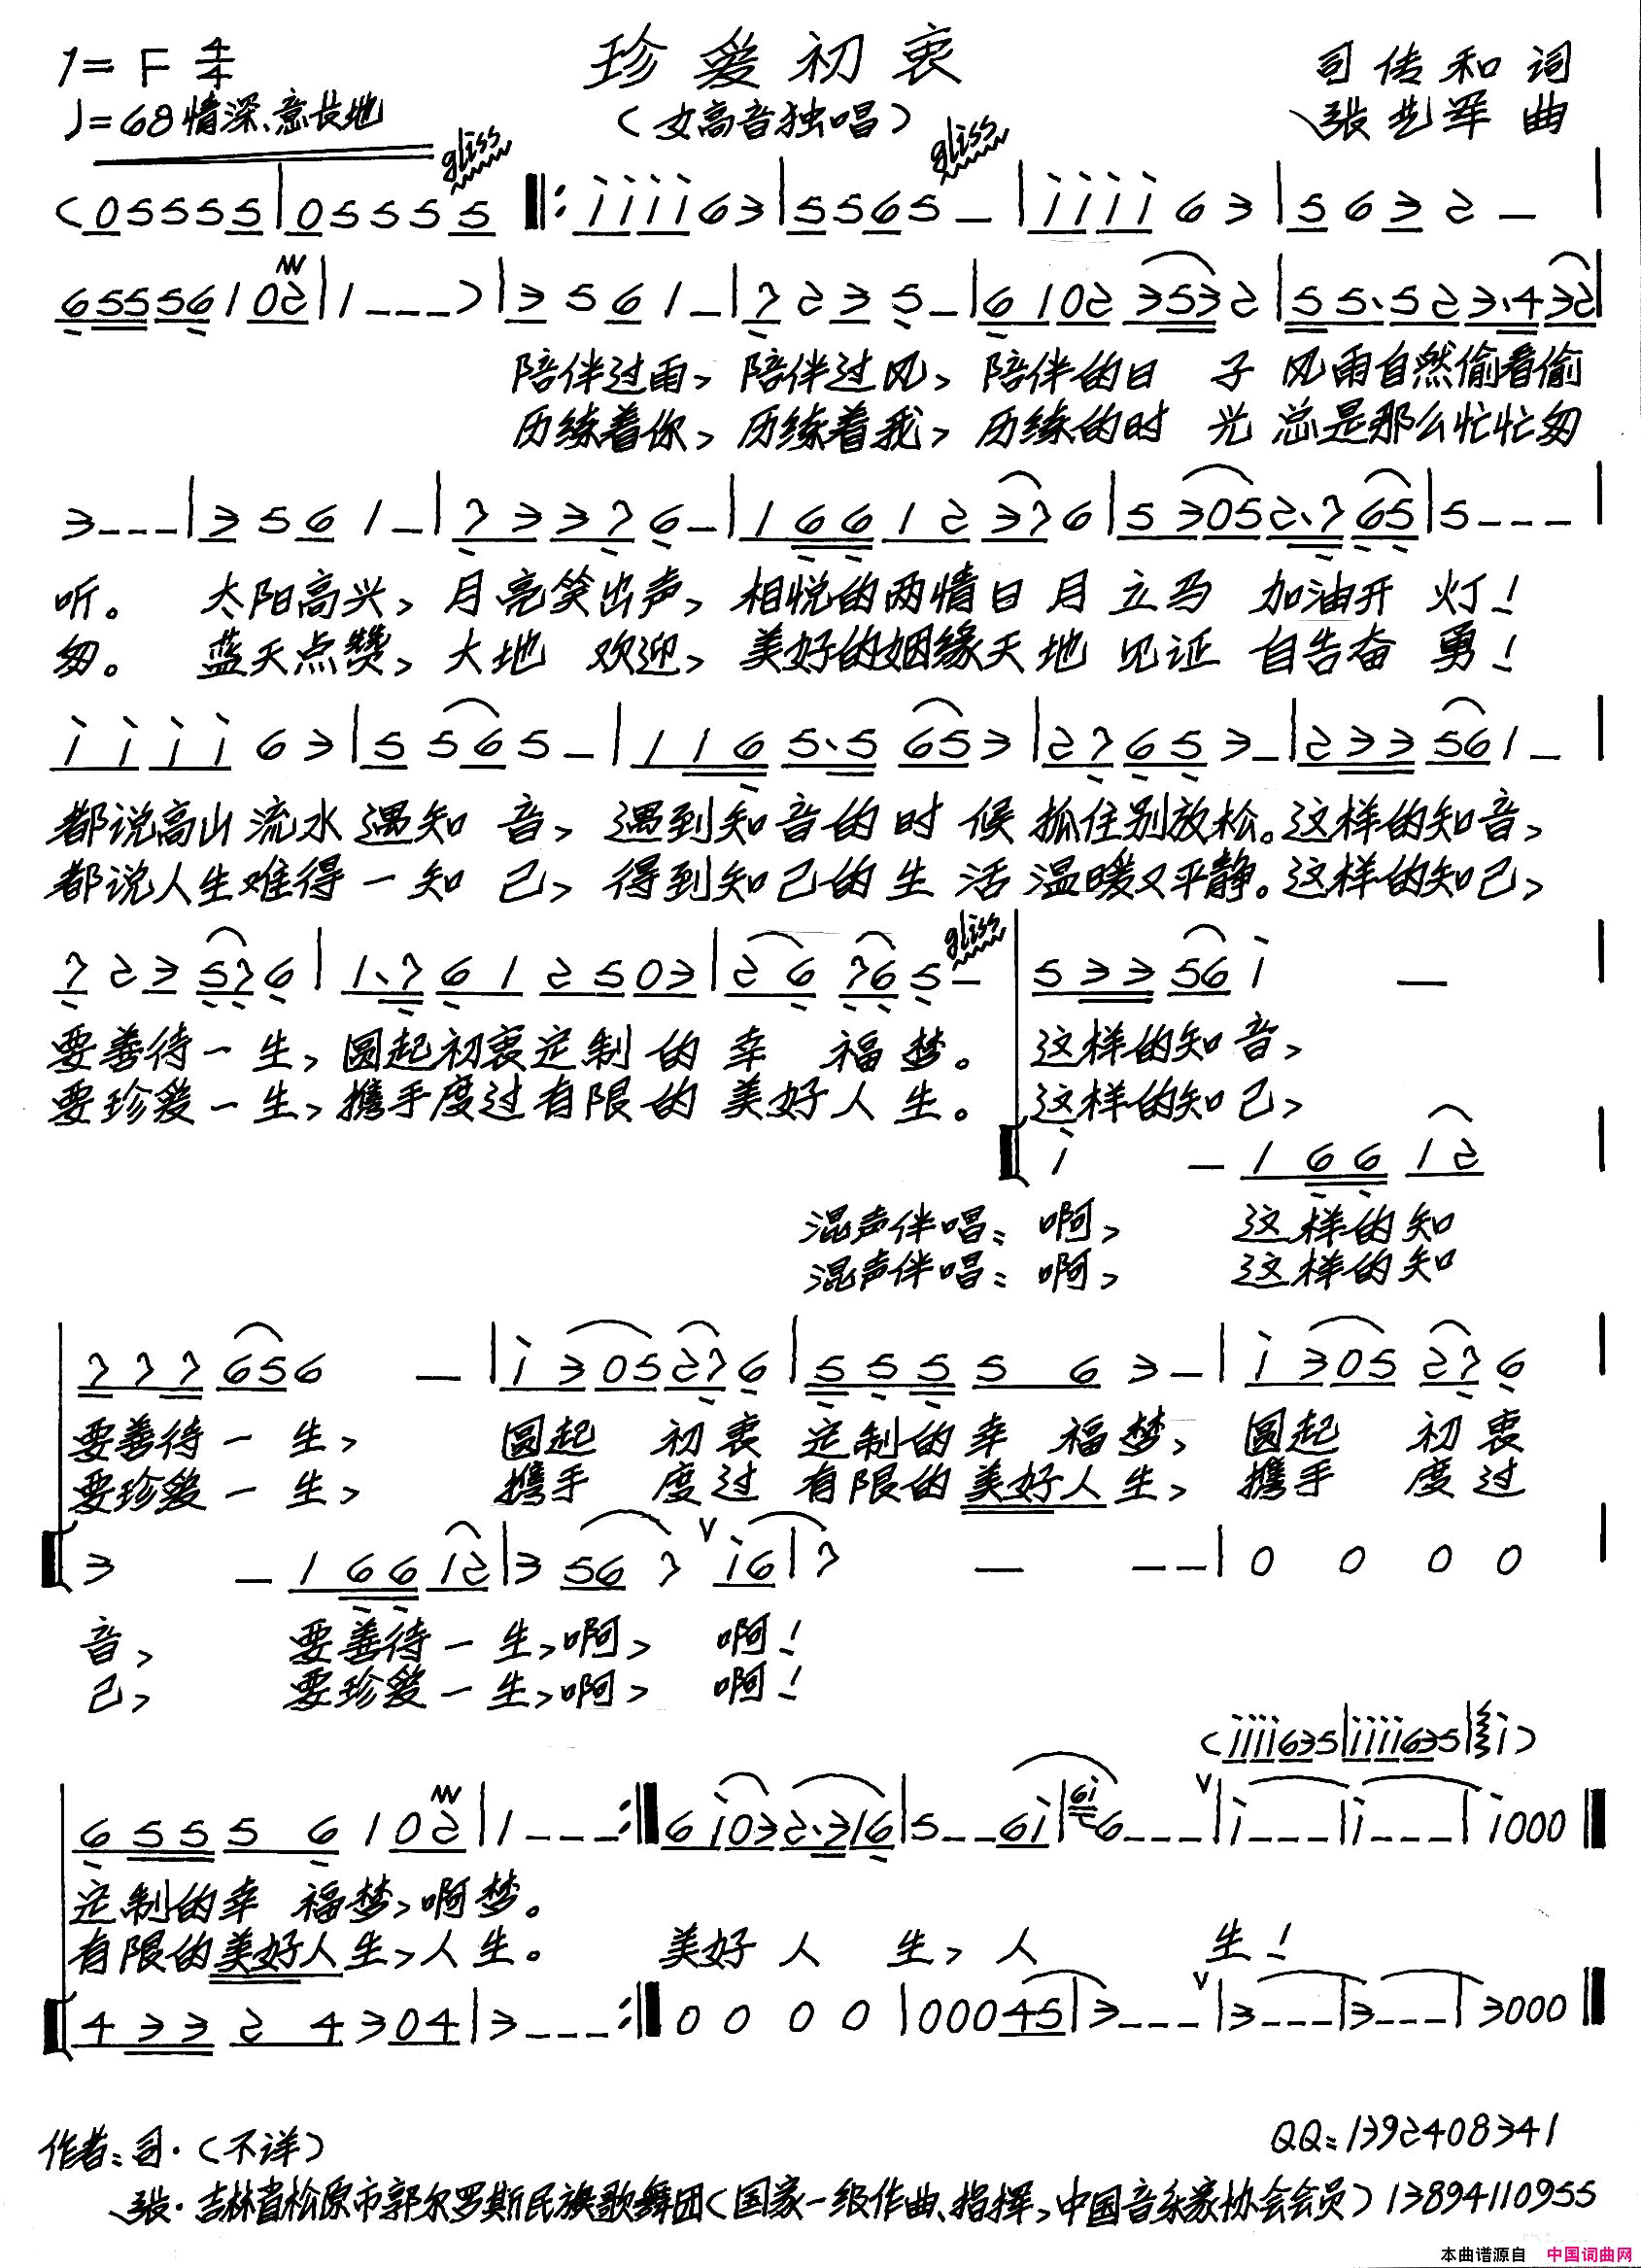 1=F 4/4
珍爱初衷
司传和 词
♩=68 情深、意长地
（女高音独唱）
张艺军 曲
gliss
gliss
(05555|05555 ‖:i i i i 6 3|5 5 6 5 –|i i i i 6 3|5 6 3 2 –|
6 5 5 5 6 1 0 2|1 – – –)|3 5 6 1 –|7 2 3 5 –|6 1 0 2 3 5 3 2|5 5. 5 2 3. 4 3 2|
陪伴过雨，陪伴过风，陪伴的日 子 风雨自然偷着偷
历练着你，历练着我，历练的时 光 总是那么忙忙匆
3 – – –|3 5 6 1 –|7 3 3 7 6 –|1 6 6 1 2 3 7 6|5 3 0 5 2. 7 6 5|5 – – –|
听。 太阳高兴，月亮笑出声，相悦的两情日月立马 加油开 灯！
匆。 蓝天点赞，大地 欢迎，美好的姻缘天地见证 自告奋 勇！
i i i i 6 3|5 5 6 5 –|1 1 6 5. 5 6 5 3|2 7 6 5 3 –|2 3 3 5 6 1 –|
都说高山流水遇知 音，遇到知音的时 候抓住别放松。这样的知音，
都说人生难得一知 己，得到知己的生 活温暖又平静。这样的知己，
gliss
7 2 3 5 7 6|1. 7 6 1 2 5 0 3|2 6 7 6 5 –|5 3 3 5 6 i –|
要善待一生，圆起初衷定制的幸 福梦。 这样的知音，
要珍爱一生，携手度过有限的美好人生。 这样的知己，
i – 1 6 6 1 2
混声伴唱：啊， 这样的知
混声伴唱：啊， 这样的知
7 7 7 6 5 6 –|i 3 0 5 2 7 6|5 5 5 5 6 3 –|i 3 0 5 2 7 6|
要善待一 生， 圆起 初衷 定制的幸 福梦，圆起 初衷
要珍爱一 生， 携手 度过 有限的美好人生，携手 度过
3 – 1 6 6 1 2|3 5 6 7 ∨ i 6|7 – – –|0 0 0 0|
音， 要善待一生，啊， 啊！
己， 要珍爱一生，啊， 啊！
(i i i i 6 3 5|i i i i 6 3 5|i)
6 5 5 5 6 1 0 2|1 – – –:‖6 i 0 3 2. 3 1 6|5 – – 6 i|6i 6 – – –∨|i – – –|i – – –|i 0 0 0‖
定制的幸 福梦，啊梦。
有限的美好人生，人生。 美好人 生，人 生！
4 3 3 2 4 3 0 4|3 – – –:‖0 0 0 0|0 0 0 4 5|3 – – –∨|3 – – –|3 – – –|3 0 0 0‖
作者：司·（不详）
QQ：1392408341
张·吉林省松原市郭尔罗斯民族歌舞团（国家一级作曲、指挥，中国音乐家协会会员）13894110955
本曲谱源自 中国词曲网